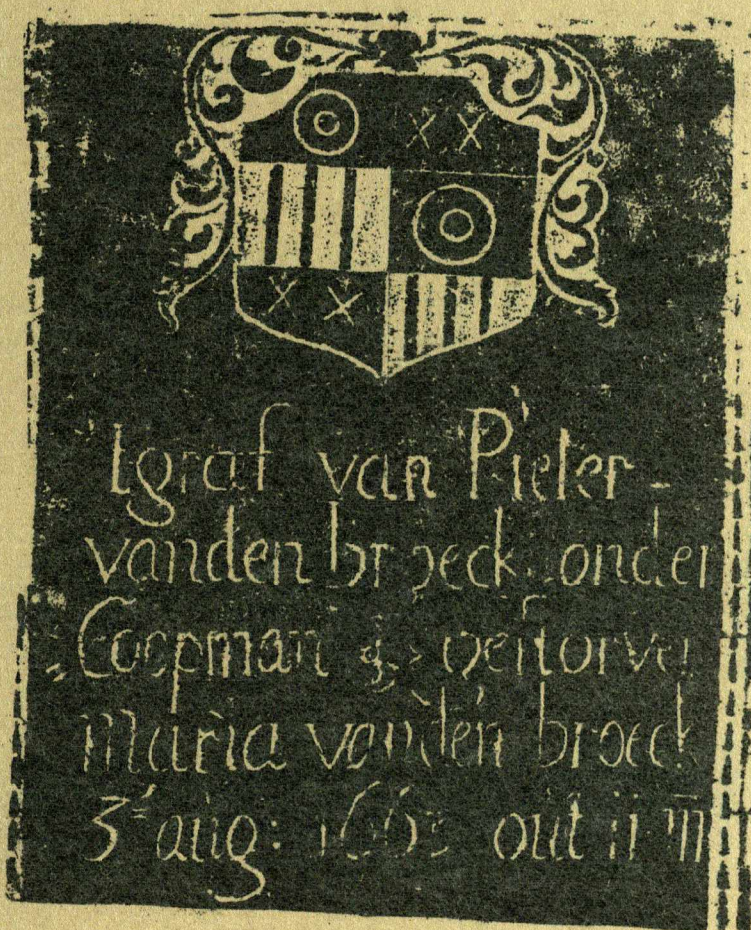 tgraf van Pieter -
vanden broeck onder
Coopman
maria vanden broeck
3 aug: out 11 m